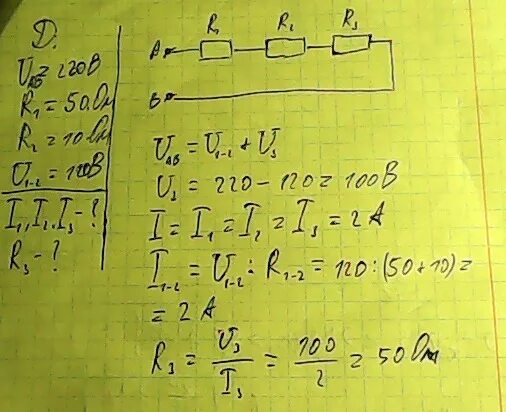 Д.
U_AB = 220В
R₁ = 50 Ом
R₂ = 10 Ом
U₁₋₂ = 120В
I₁, I₂, I₃ - ?
R₃ - ?
R₁ R₂ R₃
A
B
U_AB = U₁₋₂ + U₃
U₃ = 220 - 120 = 100В
I = I₁ = I₂ = I₃ = 2 А
I₁₋₂ = U₁₋₂ : R₁₋₂ = 120 : (50 + 10) =
= 2 А
R₃ = U₃/I₃ = 100/2 = 50 Ом